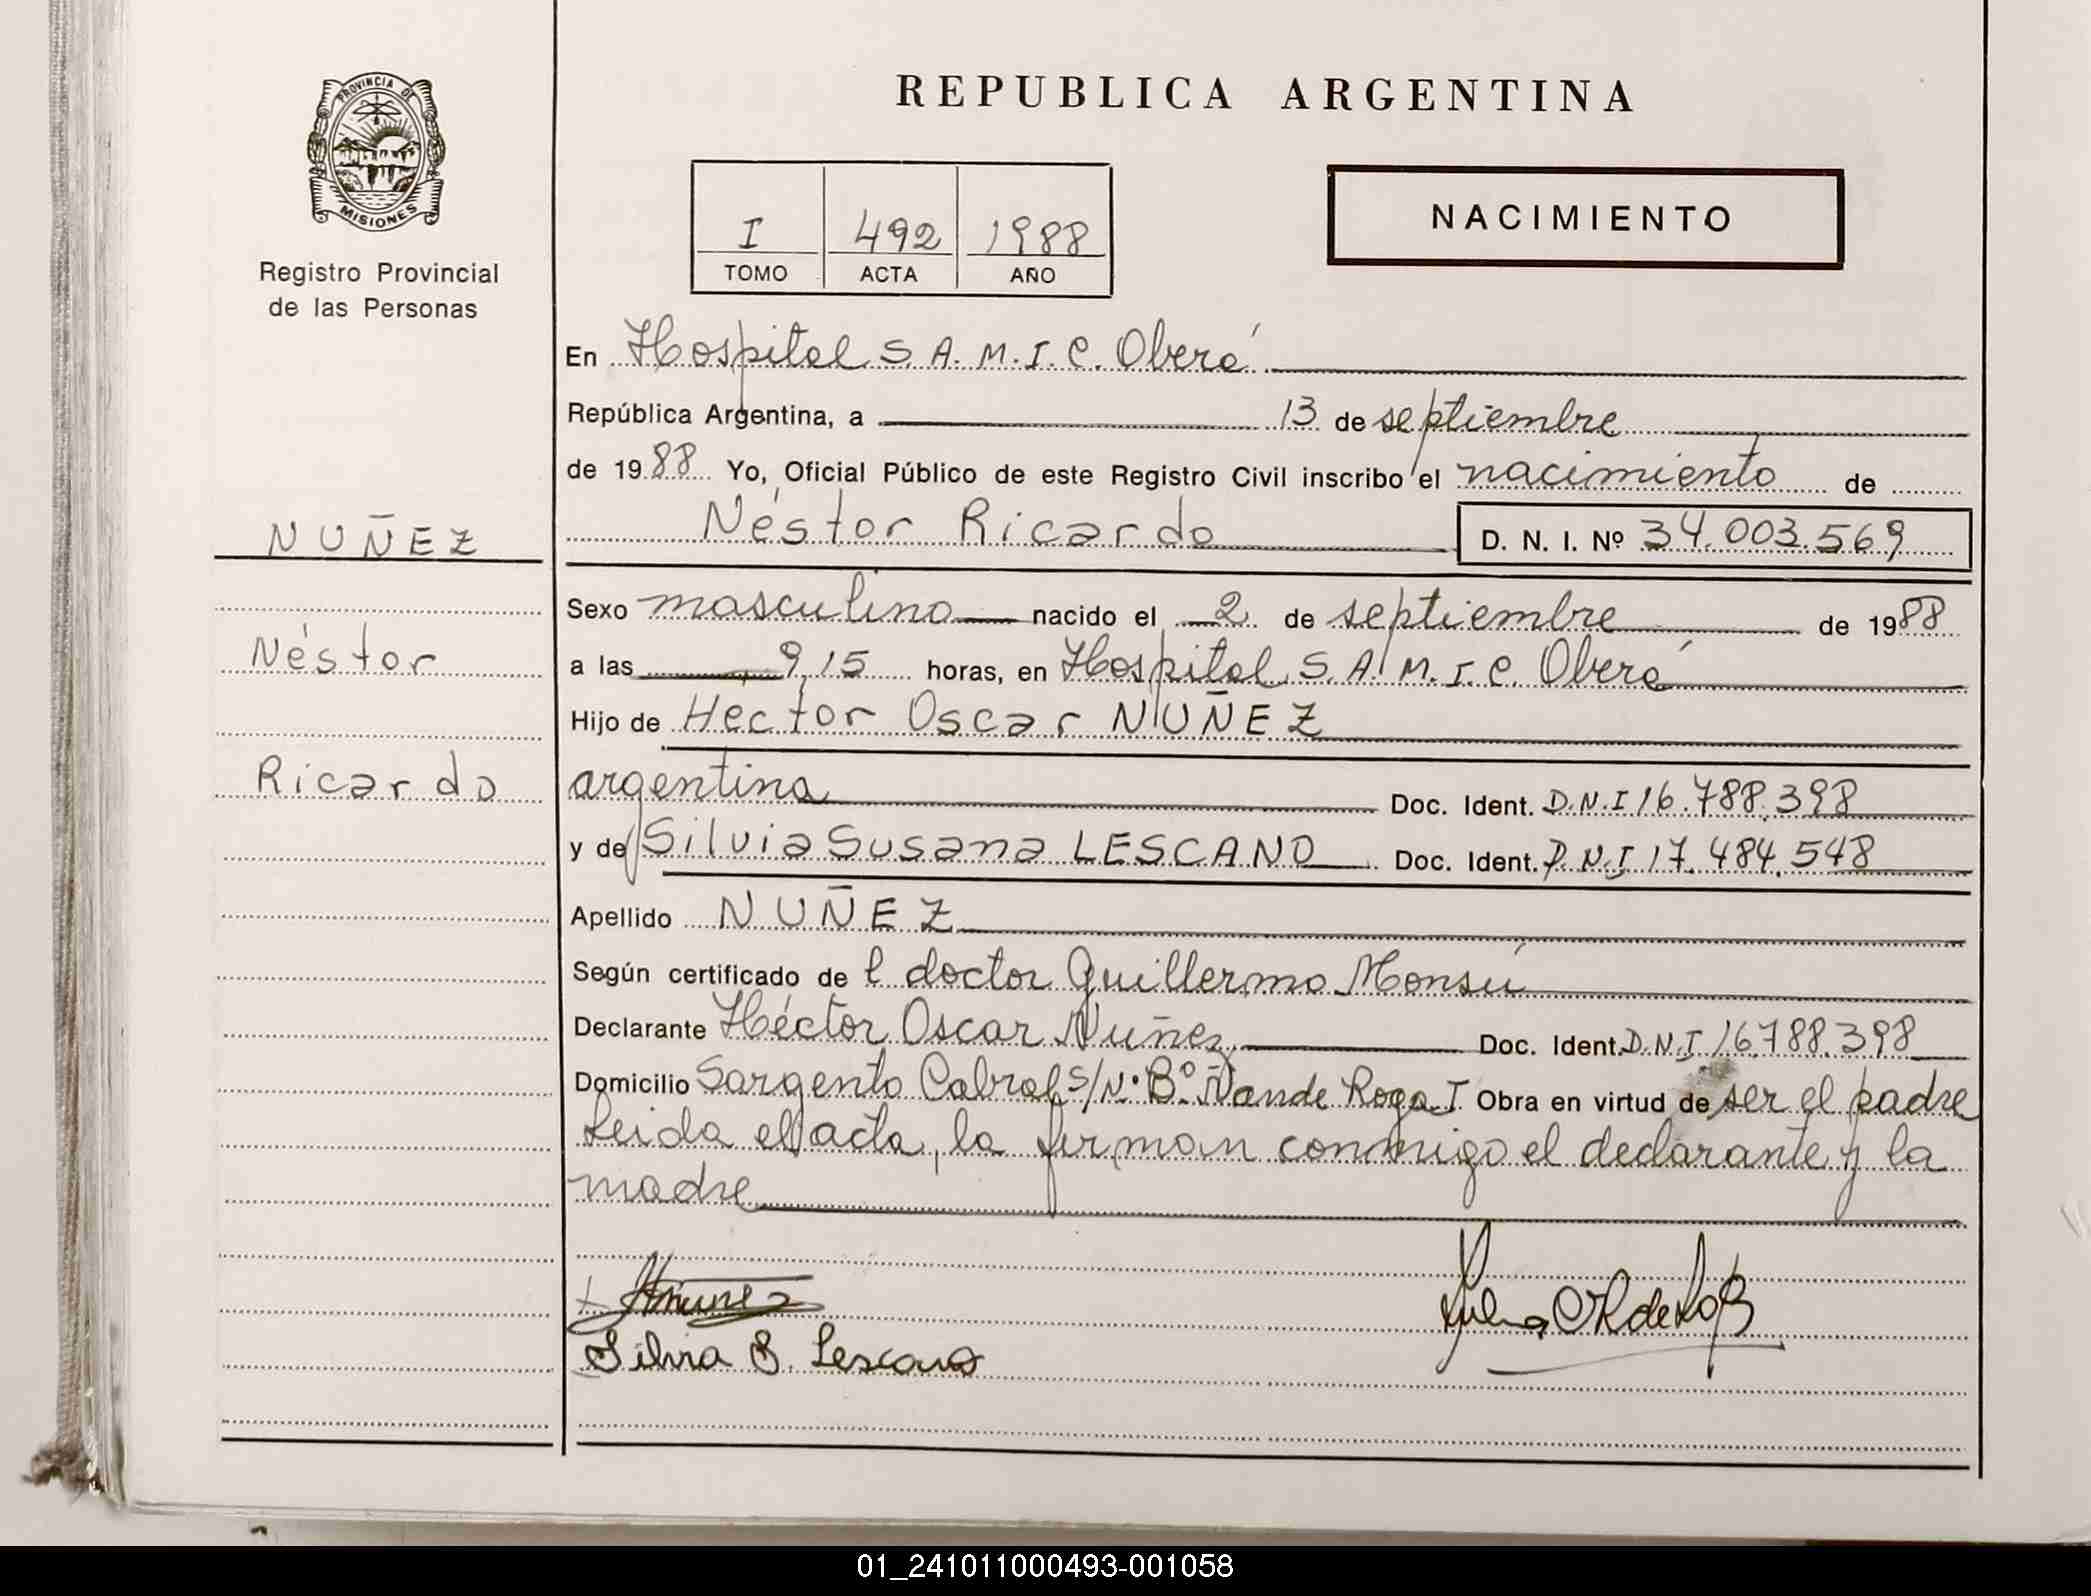 REPUBLICA ARGENTINA
PROVINCIA DE
MISIONES
Registro Provincial
de las Personas
I 492 1988
TOMO ACTA AÑO
NACIMIENTO
En Hospital S.A.M.I.C. Oberá
República Argentina, a 13 de septiembre
de 1988 Yo, Oficial Público de este Registro Civil inscribo el nacimiento de
Néstor Ricardo D. N. I. Nº 34.003.569
NUÑEZ
Néstor
Ricardo
Sexo masculino nacido el 2 de septiembre de 1988
a las 9,15 horas, en Hospital S.A.M.I.C. Oberá
Hijo de Hector Oscar NUÑEZ
argentina Doc. Ident. D.N.I 16.788.398
y de Silvia Susana LESCANO Doc. Ident. D.N.I 17.484.548
Apellido NUÑEZ
Según certificado de l doctor Guillermo Monsú
Declarante Héctor Oscar Nuñez Doc. Ident. D.N.I 16.788.398
Domicilio Sargento Cabral s/Nº Bº Ñande Roga I Obra en virtud de ser el padre
Leida el acta, la firman conmigo el declarante y la
madre
Silvia S. Lescano
01_241011000493-001058